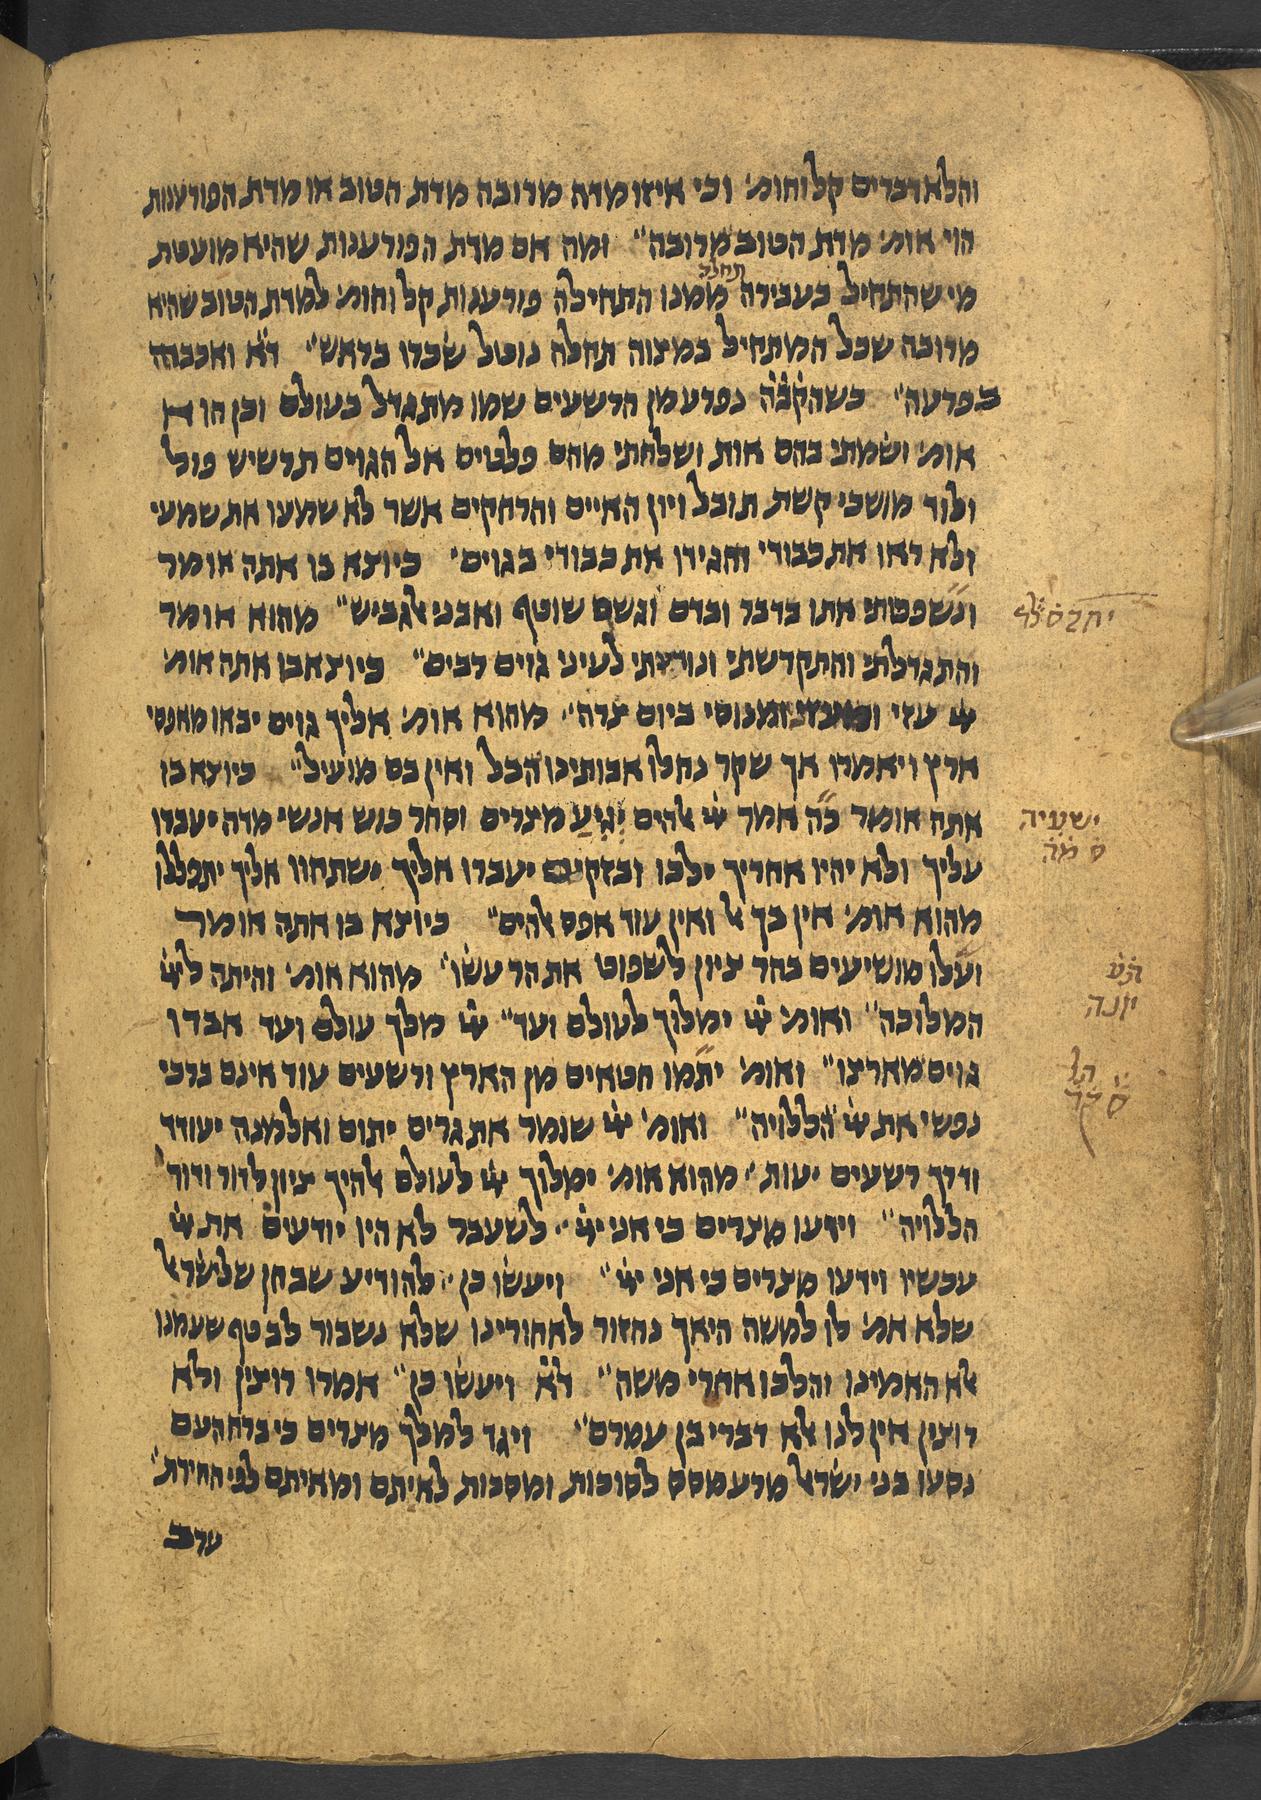 והלא דברים קל וחומ׳ וכי איזו מדה מרובה מדת הטוב או מדת הפורענות
הוי אומ׳ מדת הטוב מרובה״ ומה אם מדת הפורענות שהיא מועטת
תחלה
מי שהתחיל בעבירה ממנו התחילה פורענות קל וחומ׳ למדת הטוב שהיא
מרובה שכל המתחיל במצוה תחלה נוטל שכרו בראש׳׳ ד״א ואכבדה
בפרעה׳׳ כשהקב״ה נפרע מן הרשעים שמו מתגדל בעולם וכן הוא
אומ׳ ושמתי בהם אות ושלחתי מהם פלטים אל הגוים תרשיש פול
ולוד מושכי קשת תובל ויון האיים והרחקים אשר לא שמעו את שמעי
ולא ראו את כבודי והגידו את כבודי בגוים׳ כיוצא בו אתה אומר
ונשפטתי אתו בדבר ובדם וגשם שוטף ואבני אלגביש״ מהוא אומר
והתגדלתי והתקדשתי ונודעתי לעיני גוים רבים״ כיוצא בו אתה אומ׳
יי׳ עזי ומנוסי ביום צרה׳׳ מהוא אומ׳ אליך גוים יבאו מאפסי
ארץ ויאמרו אך שקר נחלו אבותינו הבל ואין בם מועיל״ כיוצא בו
אתה אומר כ״ה אמר יי׳ אלהים יגיע מצרים וסחר כוש אנשי מדה יעברו
עליך ולא יהיו אחריך ילכו ובזקים יעברו אליך ישתחוו אליך יתפללו
מהוא אומ׳ אין בך אל ואין עוד אפס אלהים״ כיוצא בו אתה אומר
ועלו מושיעים בהר ציון לשפוט את הר עשו׳׳ מהוא אומ׳ והיתה ליי׳
המלוכה״ ואומ׳ יי׳ ימלוך לעולם ועד״ יי׳ מלך עולם ועד אבדו
גוים מארצו״ ואומ׳ יתמו חטאים מן הארץ ורשעים עוד אינם ברכי
נפשי את יי׳ הללויה״ ואומ׳ יי׳ שומר את גרים יתום ואלמנה יעודד
ודרך רשעים יעות׳׳ מהוא אומ׳ ימלוך יי׳ לעולם אלהיך ציון לדור ודור׳
הללויה״ וידעו מצרים כי אני יי׳׳׳ לשעבר לא היו יודעים את יי׳
עכשיו וידעו מצרים כי אני יי׳״ ויעשו כן׳׳ להודיע שבחן שלישראל
שלא אמ׳ לו למשה היאך נחזור לאחורינו שלא נשבור לב טף שעמנו
אלא האמינו והלכו אחרי משה״ ד״א ויעשו כן״ אמרו רוצין ולא
רוצין אין לנו אלא דברי בן עמרם׳׳ ויגד למלך מצרים כי ברח העם
נסעו בני ישראל מרעמסס לסוכות ומסכות לאיתם ומאיתם לפי החירת׳
ערב
ישעיה
ס מה
יונה